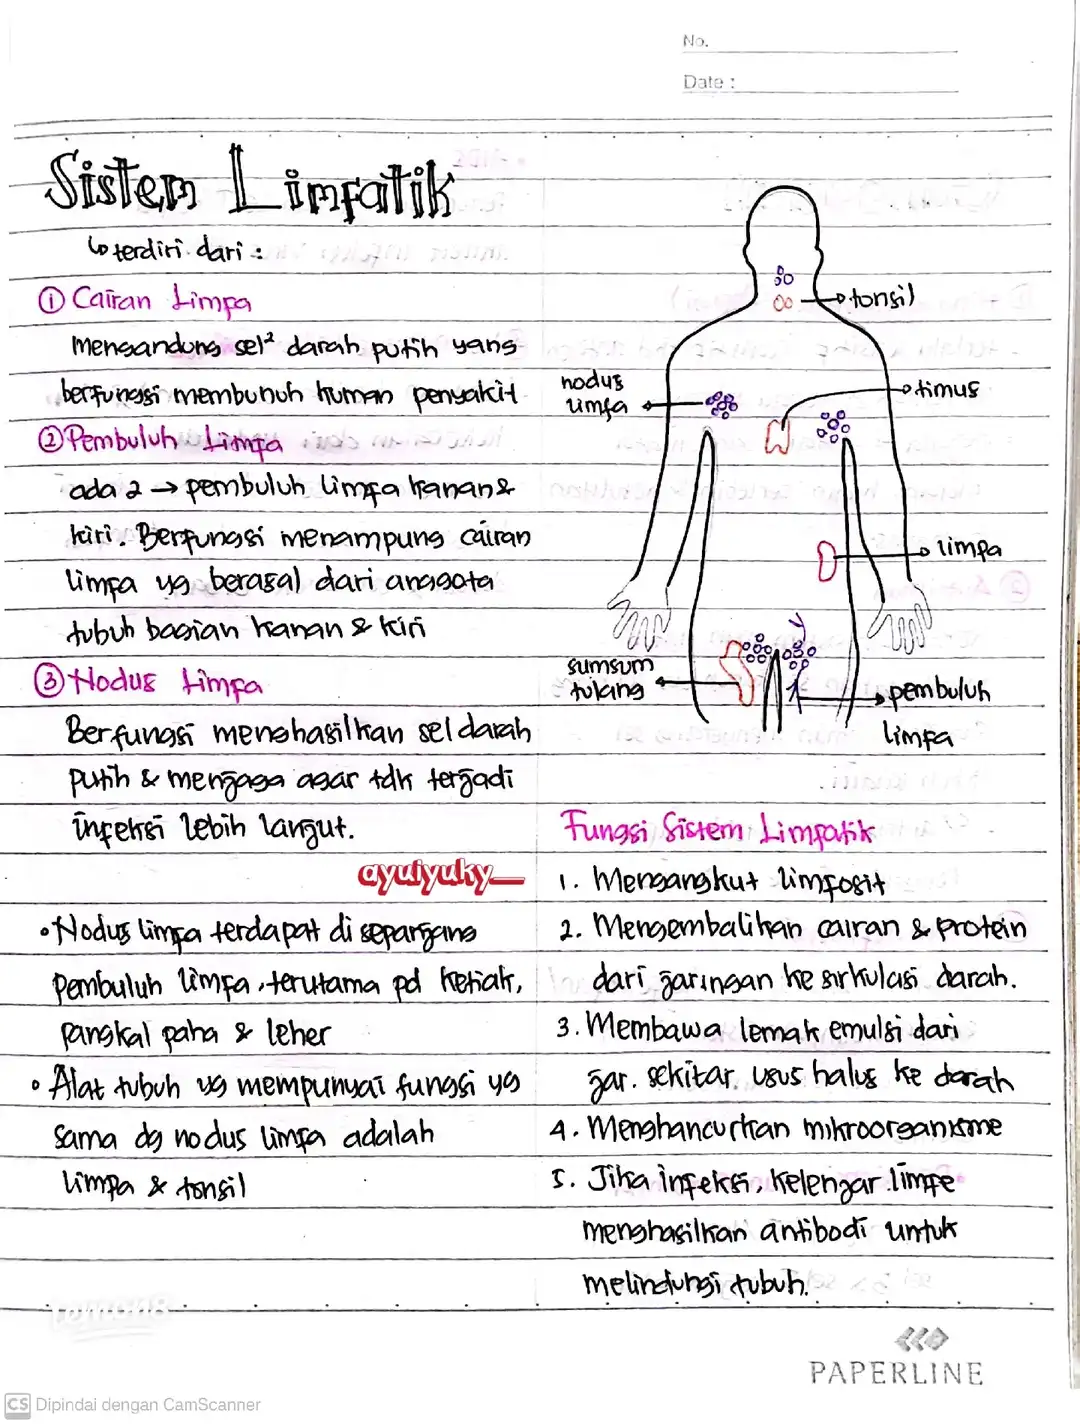 No.
Date :
Sistem Limfatik
↳ terdiri dari :
① Cairan Limfa
Mengandung sel² darah putih yang
berfungsi membunuh kuman penyakit
② Pembuluh Limfa
ada 2 → pembuluh limfa kanan &
kiri. Berfungsi menampung cairan
limfa yg berasal dari anggota
tubuh bagian kanan & kiri
③ Nodus Limfa
Berfungsi menghasilkan sel darah
putih & menjaga agar tdk terjadi
infeksi lebih lanjut.
ayuiyuky_
• Nodus limfa terdapat di sepanjang
Pembuluh limfa, terutama pd ketiak,
pangkal paha & leher
• Alat tubuh yg mempunyai fungsi yg
sama dg nodus limfa adalah
limpa & tonsil
tonsil
nodus
limfa
timus
limpa
sumsum
tulang
pembuluh
limfa
Fungsi Sistem Limfatik
1. Mengangkut limfosit
2. Mengembalikan cairan & protein
dari jaringan ke sirkulasi darah.
3. Membawa lemak emulsi dari
jar. sekitar usus halus ke darah
4. Menghancurkan mikroorganisme
5. Jika infeksi, kelenjar limfe
menghasilkan antibodi untuk
melindungi tubuh.
Lemon8
PAPERLINE
CS Dipindai dengan CamScanner